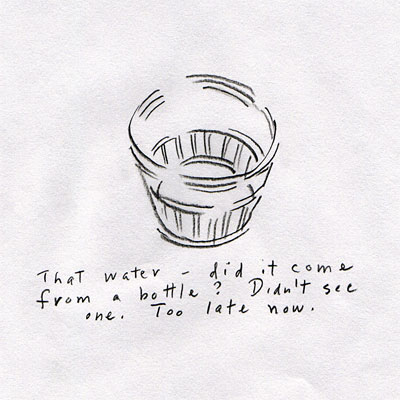 That water - did it come
from a bottle? Didn't see
one. Too late now.